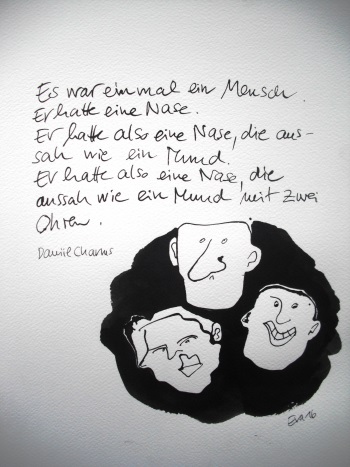 Es war einmal ein Mensch.
Er hatte eine Nase.
Er hatte also eine Nase, die aus-
sah wie ein Mund.
Er hatte also eine Nase, die
aussah wie ein Mund mit zwei
Ohren.
Daniil Charms
Eva 16